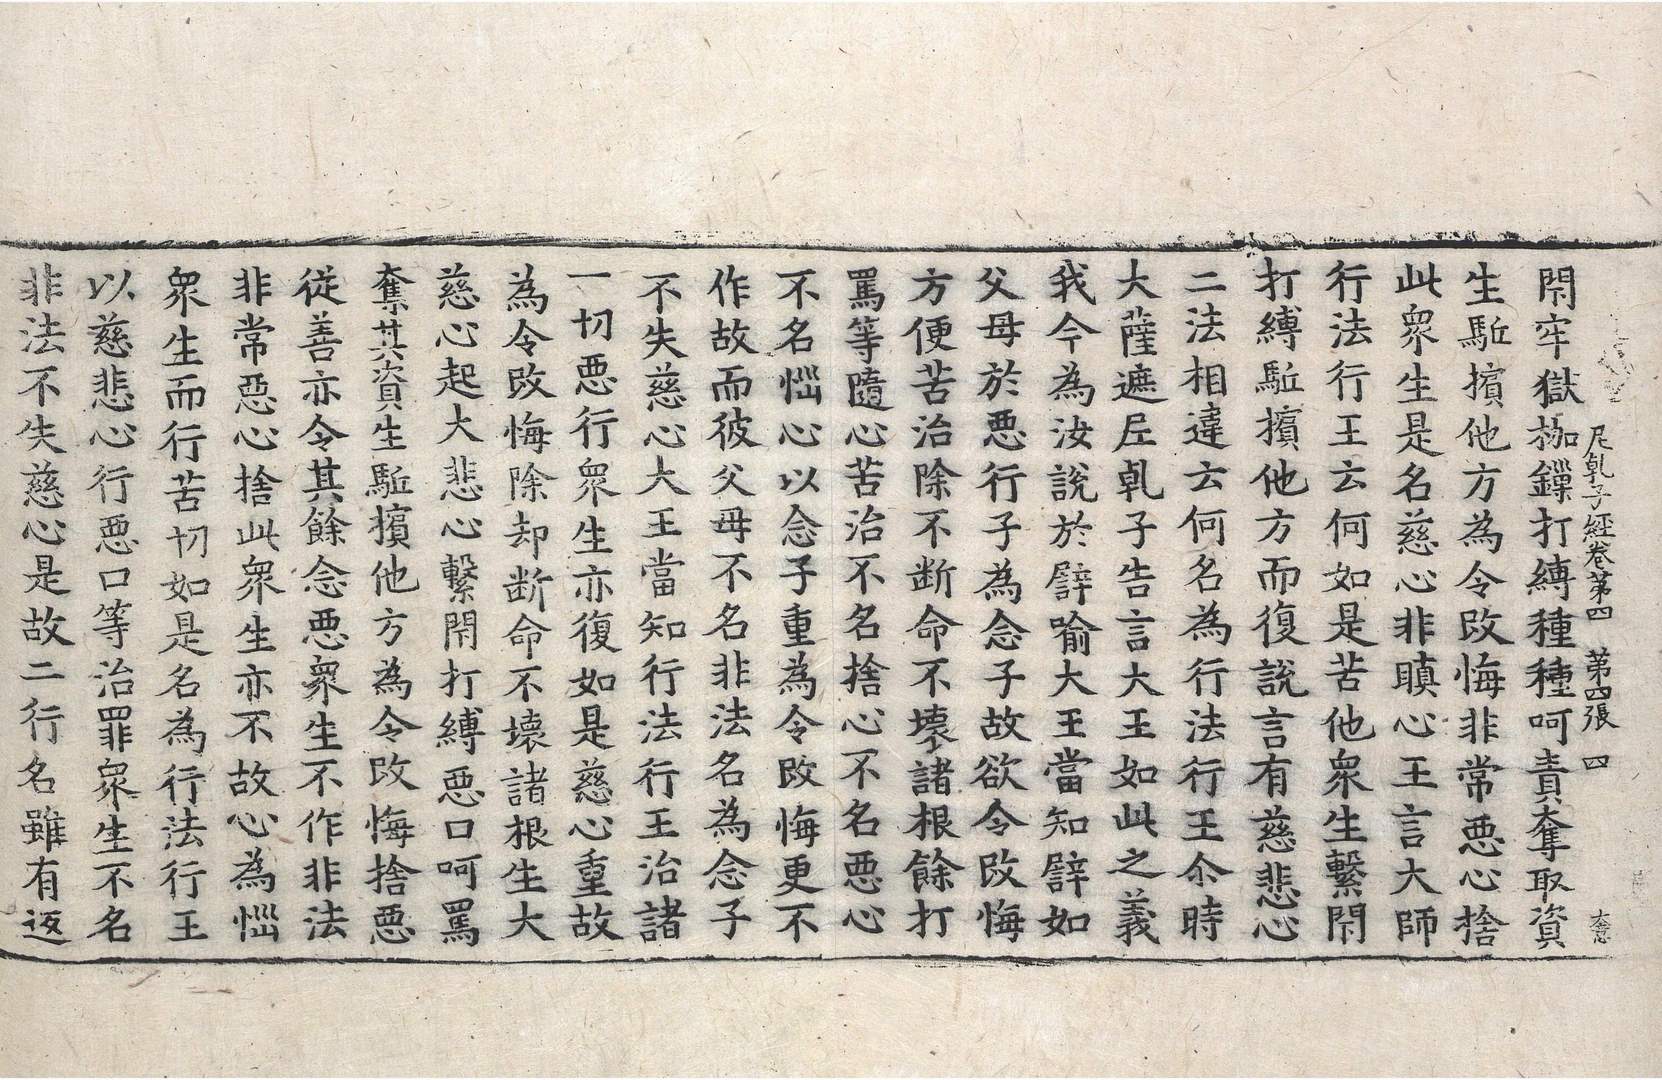 尼乹子經卷第四 第四張 四
閇牢獄枷鏁打縛種種呵責奪取資
生駈擯他方為令改悔非常惡心捨
此衆生是名慈心非瞋心王言大師
行法行王云何如是苦他衆生繫閇
打縛駈擯他方而復說言有慈悲心
二法相違云何名為行法行王尒時
大薩遮尼乹子告言大王如此之義
我今為汝說於譬喻大王當知譬如
父母於惡行子為念子故欲令改悔
方便苦治除不斷命不壞諸根餘打
罵等隨心苦治不名捨心不名惡心
不名惱心以念子重為令改悔更不
作故而彼父母不名非法名為念子
不失慈心大王當知行法行王治諸
一切惡行衆生亦復如是慈心重故
為令改悔除却断命不壞諸根生大
慈心起大悲心繫閇打縛惡口呵罵
奪其資生駈擯他方為令改悔捨惡
從善亦令其餘念惡衆生不作非法
非常惡心捨此衆生亦不故心為惱
衆生而行苦切如是名為行法行王
以慈悲心行惡口等治罪衆生不名
非法不失慈心是故二行名雖有返